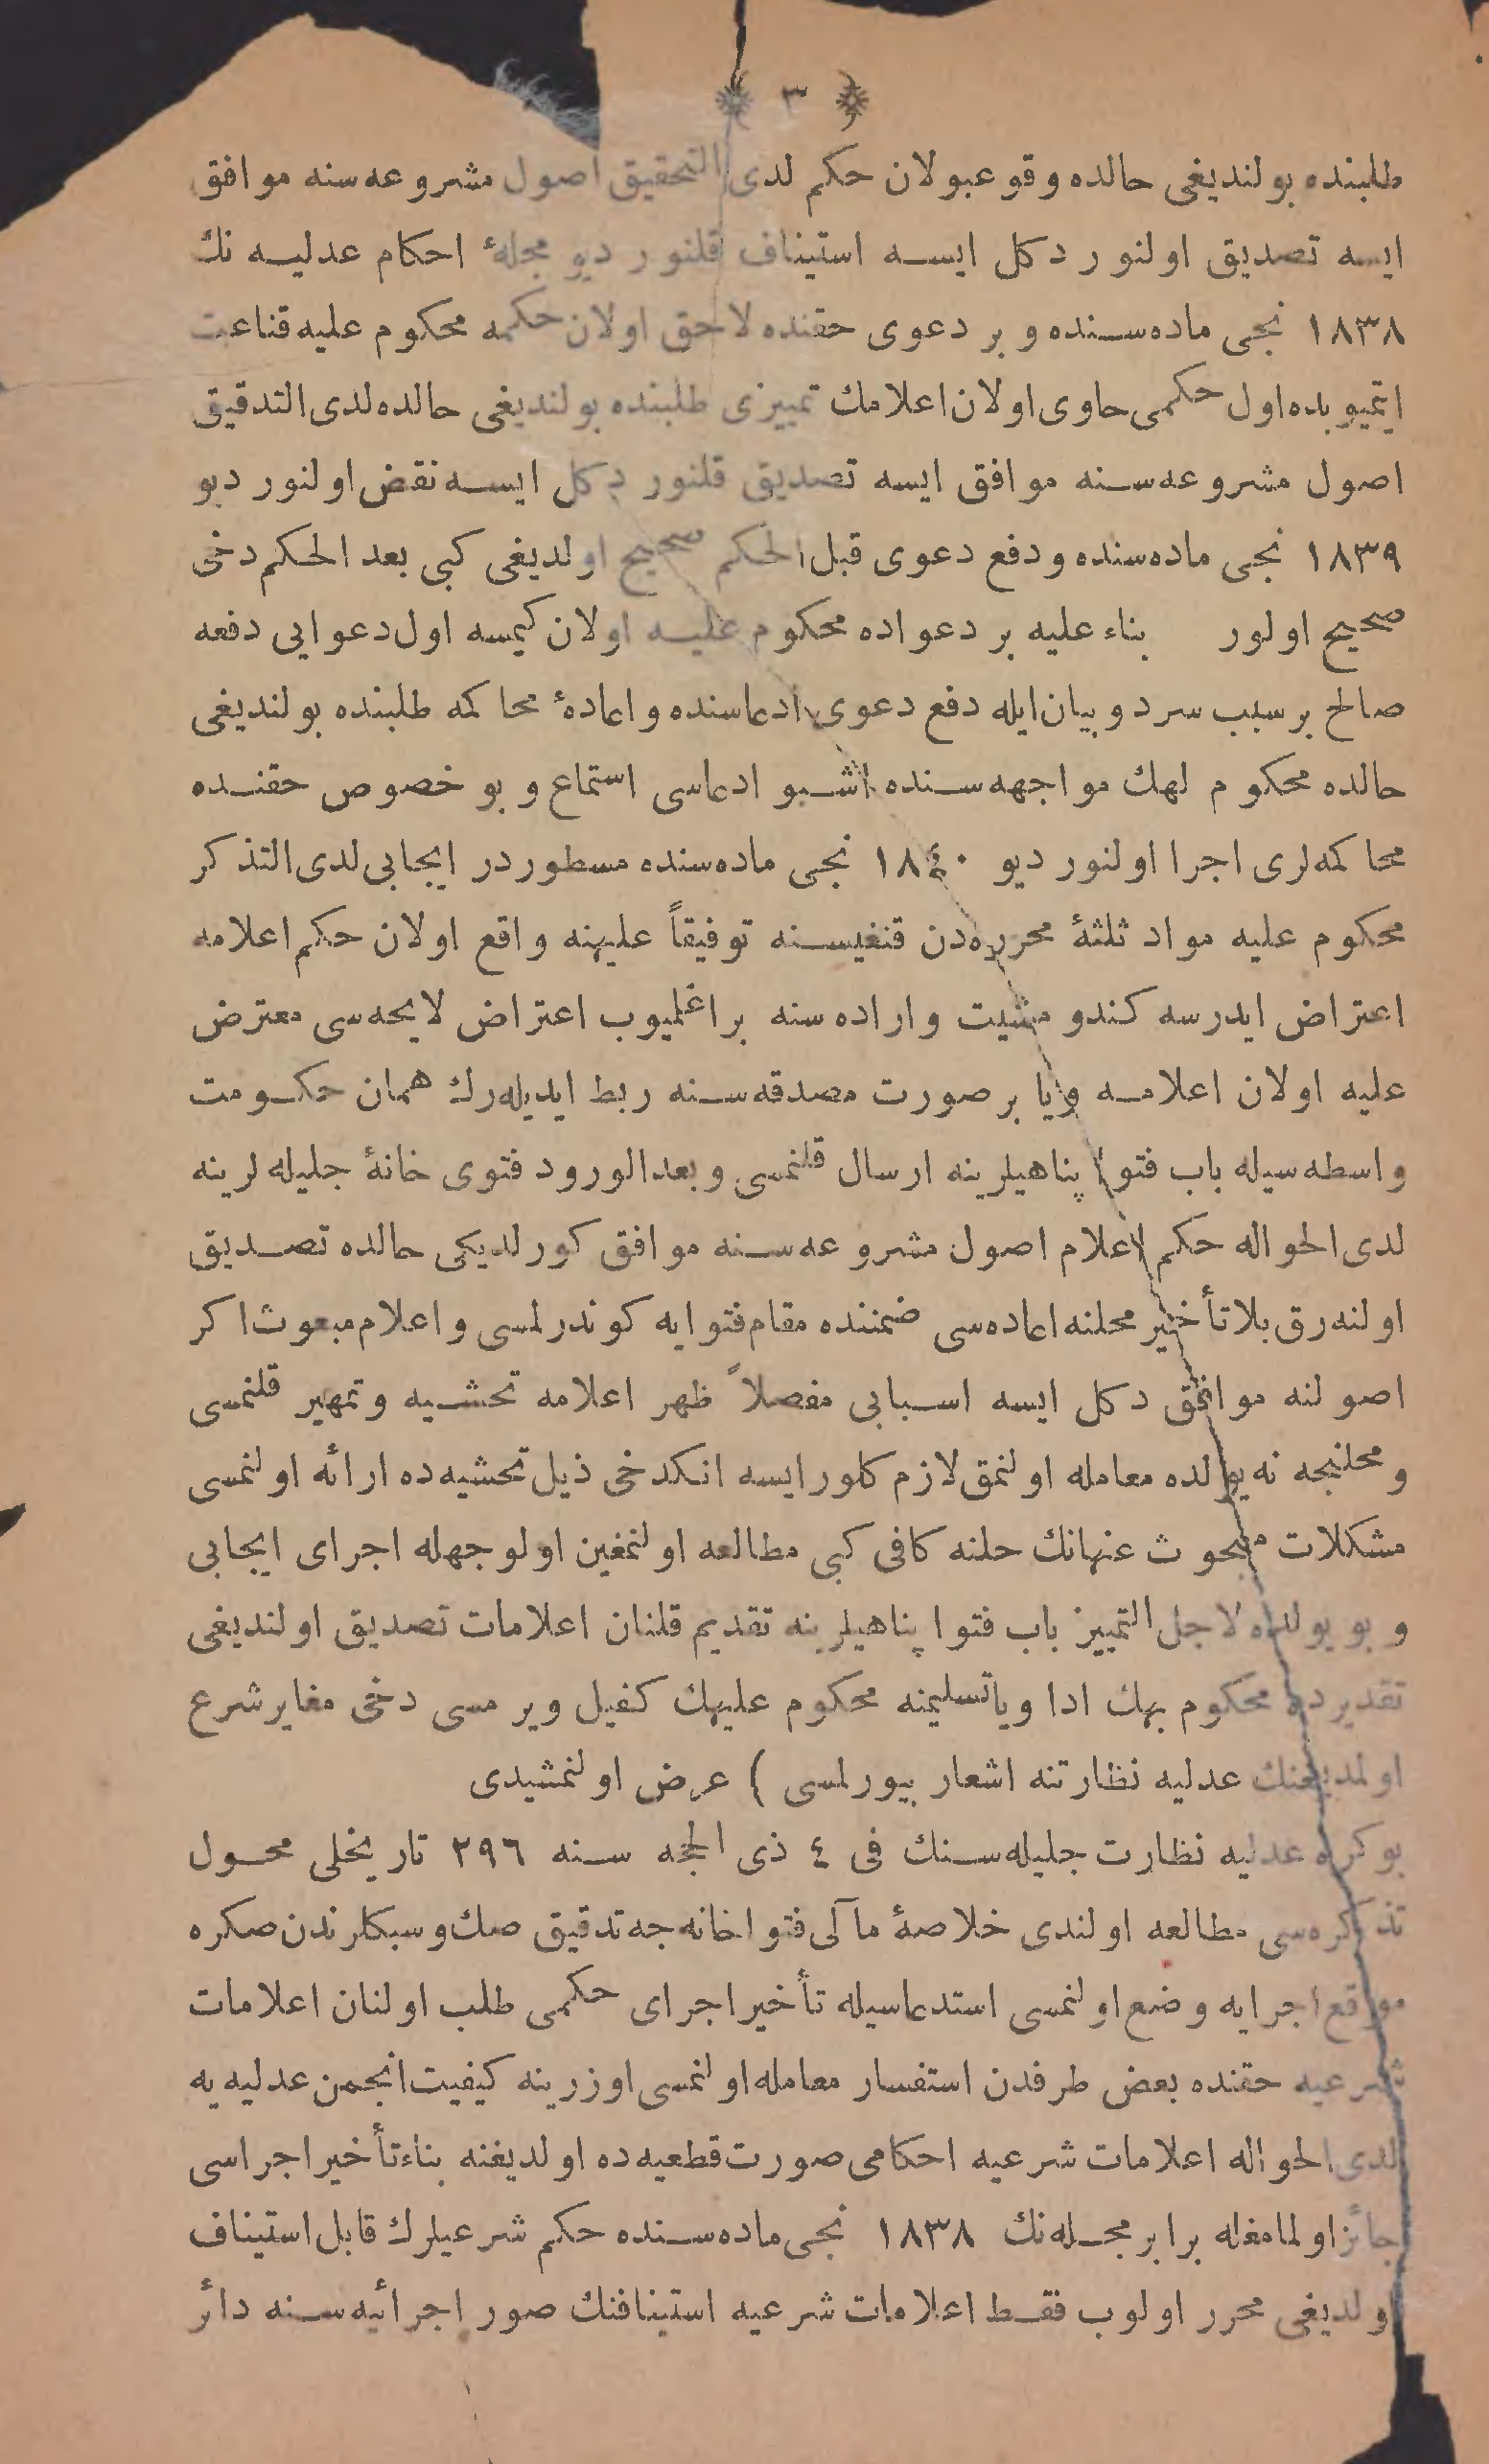 ٣
طلبنده بولنديغى حالده وقوعبولان حكم لدى التحقيق اصول مشروعه‌سنه موافق
ايسه تصديق اولنور دكل ايسه استيناف قلنور ديو مجلهٔ احكام عدليه نك
١٨٣٨ نجى ماده‌سنده و بر دعوى حقنده لاحق اولان حكمه محكوم عليه قناعت
ايتميوبده اول حكمى حاوى اولان اعلامك تمييزى طلبنده بولنديغى حالده لدى التدقيق
اصول مشروعه‌سنه موافق ايسه تصديق قلنور دكل ايسه نقض اولنور ديو
١٨٣٩ نجى ماده‌سنده و دفع دعوى قبل الحكم صحيح اولديغى كبى بعد الحكم دخى
صحيح اولور بناء عليه بر دعواده محكوم عليه اولان كيمسه اول دعوايى دفعه
صالح بر سبب سرد و بيان ايله دفع دعوى ادعاسنده و اعادهٔ محاكمه طلبنده بولنديغى
حالده محكوم لهك مواجهه‌سنده اشبو ادعاسى استماع و بو خصوص حقنده
محاكمه‌لرى اجرا اولنور ديو ١٨٤٠ نجى ماده‌سنده مسطوردر ايجابى لدى التذكر
محكوم عليه مواد ثلثهٔ محرره‌دن قنغيسنه توفيقاً عليهنه واقع اولان حكم اعلامه
اعتراض ايدرسه كندو مشيت و اراده‌سنه براغلميوب اعتراض لايحه‌سى معترض
عليه اولان اعلامه ويا بر صورت مصدقه‌سنه ربط ايديله‌رك همان حكومت
واسطه‌سيله باب فتوا پناهيلرينه ارسال قلنمسى و بعد الورود فتوى خانهٔ جليله‌لرينه
لدى الحواله حكم اعلام اصول مشروعه‌سنه موافق كورلديكى حالده تصديق
اولنه‌رق بلا تأخير محلنه اعاده‌سى ضمننده مقام فتوايه كوندرلمسى و اعلام مبعوث اكر
اصولنه موافق دكل ايسه اسبابى مفصلاً ظهر اعلامه تحشيه و تمهير قلنمسى
و محلنجه نه‌يولده معامله اولنمق لازم كلور ايسه انكدخى ذيل تحشيه‌ده ارائه اولنمسى
مشكلات مبحوث عنهانك حلنه كافى كبى مطالعه اولنمغين اولوجهله اجراى ايجابى
و بو يولده لاجل التمييز باب فتوا پناهيلرينه تقديم قلنان اعلامات تصديق اولنديغى
تقديرده محكوم بهك ادا ويا تسليمنه محكوم عليهك كفيل ويرمسى دخى مغاير شرع
اولمديغنك عدليه نظارتنه اشعار بيورلمسى ) عرض اولنمشيدى
بو كره عدليه نظارت جليله‌سنك فى ٤ ذى الحجه سنه ٢٩٦ تاريخلى محول
تذكره‌سى مطالعه اولندى خلاصهٔ مآلى فتواخانه‌جه تدقيق صك و سبكلرندن صكره
موقع اجرايه وضع اولنمسى استدعاسيله تأخير اجراى حكمى طلب اولنان اعلامات
شرعيه حقنده بعض طرفدن استفسار معامله اولنمسى اوزرينه كيفيت انجمن عدليه‌يه
لدى الحواله اعلامات شرعيه احكامى صورت قطعيه‌ده اولديغنه بناء تأخير اجراسى
جائز اولمامغله برابر مجله‌نك ١٨٣٨ نجى ماده‌سنده حكم شرعيلرك قابل استيناف
اولديغى محرر اولوب فقط اعلامات شرعيه استينافنك صور اجرائيه‌سنه دائر